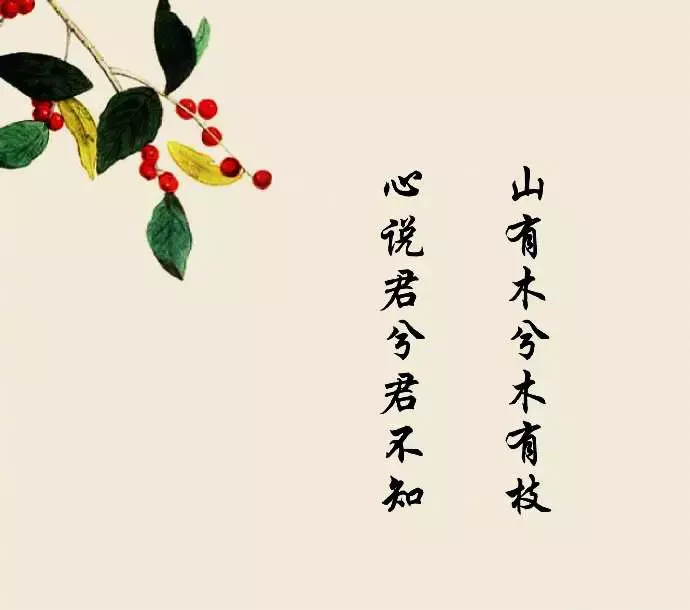 山有木兮木有枝
心说君兮君不知